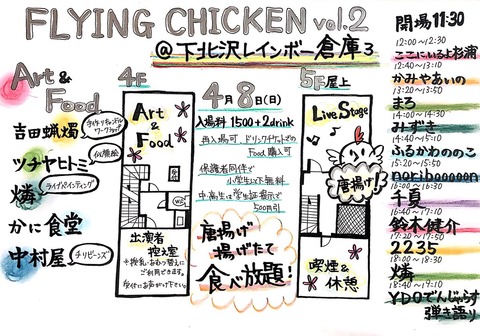 FLYING CHICKEN vol.2
@下北沢レインボー倉庫3
Art & Food
吉田蝋燭
ツチヤヒトミ
似顔絵
燐
ライブペインティング
かに食堂
中村屋
チリビーンズ
4F
Art & Food
WC
出演者控え室
4月8日(日)
入場料 1500+2drink
再入場可、ドリンクチケットでのFood購入可
保護者同伴で小学生以下無料
中・高生は学生証提示で500円引
唐揚げ
揚げたて
食べ放題!
5F屋上
Live Stage
唐揚げ
喫煙&休憩
開場11:30
12:00〜12:30
ここにいるよ杉浦
12:40〜13:10
かみやあいの
13:20〜13:50
まろ
14:00〜14:30
みずき
14:40〜15:10
ふるかわののこ
15:20〜15:50
noribooooon
16:00〜16:30
千夏
16:40〜17:10
鈴木健介
17:20〜17:50
2235
18:00〜18:30
燐
18:40〜19:10
YDOでんじゃらす
弾き語り